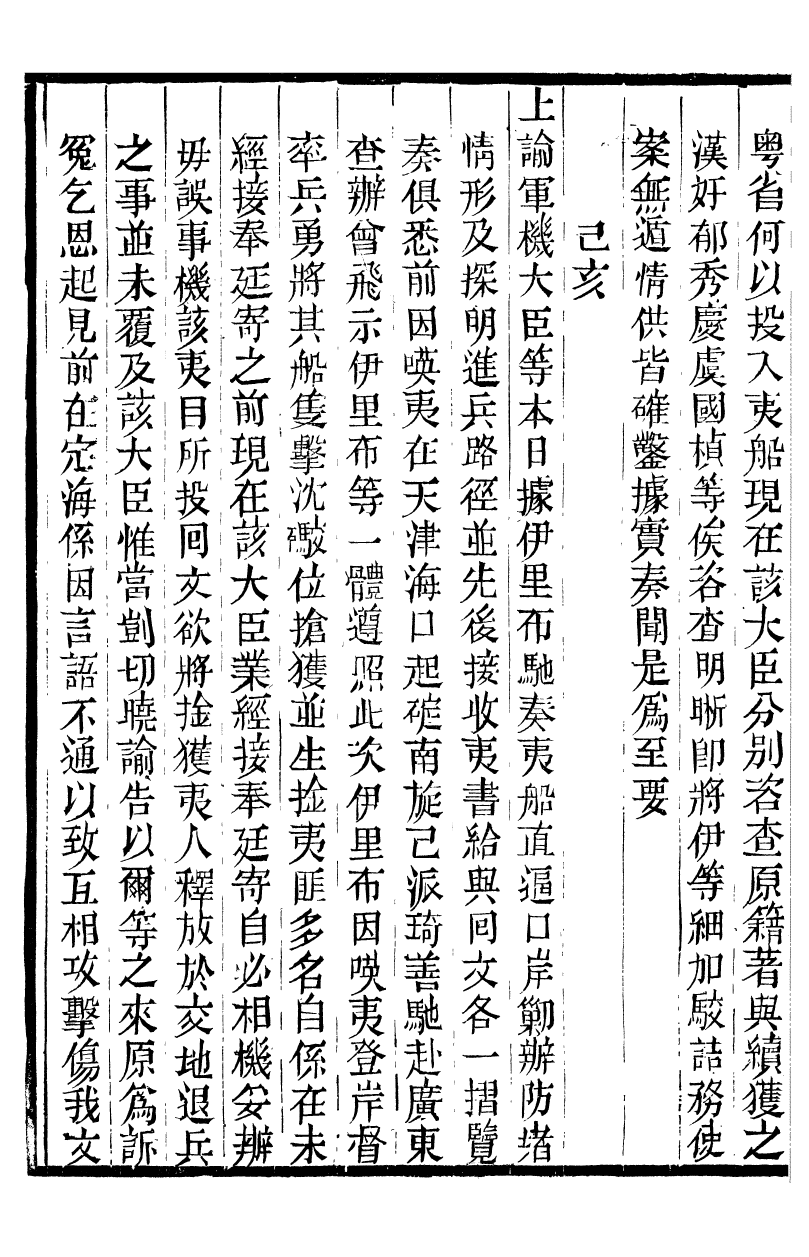 粤省何以投入夷船現在該大臣分別咨查原籍著與續獲之
漢奸郁秀慶虞國楨等俟咨查明晰卽將伊等細加駮詰務使
案無遁情供皆確鑿據實奏聞是爲至要
己亥
上諭軍機大臣等本日據伊里布馳奏夷船直逼口岸勦辦防堵
情形及探明進兵路徑並先後接收夷書給與回文各一摺覽
奏俱悉前因𠸄夷在天津海口起碇南旋已派琦善馳赴廣東
查辦曾飛示伊里布等一體遵照此次伊里布因𠸄夷登岸督
率兵勇將其船隻擊沈礮位搶獲並生捦夷匪多名自係在未
經接奉廷寄之前現在該大臣業經接奉廷寄自必相機妥辦
毋誤事機該夷目所投回文欲將捦獲夷人釋放於交地退兵
之事並未覆及該大臣惟當剴切曉諭告以爾等之來原爲訴
冤乞恩起見前在定海係因言語不通以致互相攻擊傷我文